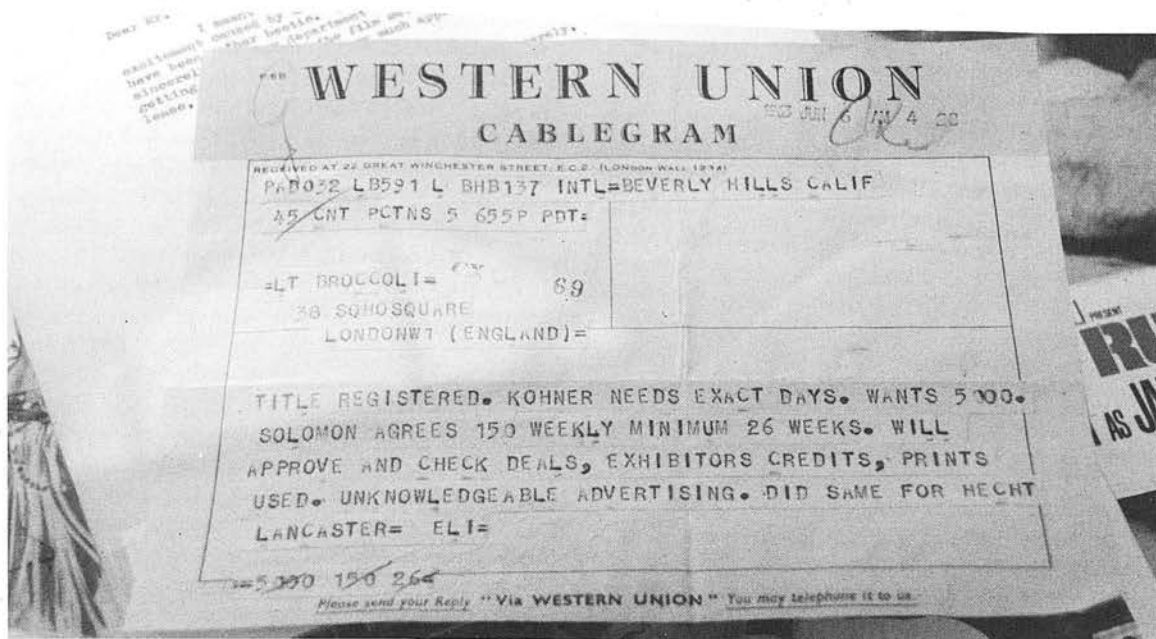 Dear Mr.
I
excitement caused by
have been
department
the film
sincerel
such app
getting
rely.
lease.
WESTERN UNION
JUN 6 AM 4
CABLEGRAM
RECEIVED AT 22 GREAT WINCHESTER STREET, E.C.2. (LONDON WALL 1234)
PAB032 LB591 L BHB137 INTL=BEVERLY HILLS CALIF
45 CNT PCTNS 5 655P PDT=
=LT BROCCOLI=
69
38 SOHOSQUARE
LONDONW1 (ENGLAND)=
TITLE REGISTERED. KOHNER NEEDS EXACT DAYS. WANTS 5000.
SOLOMON AGREES 150 WEEKLY MINIMUM 26 WEEKS. WILL
APPROVE AND CHECK DEALS, EXHIBITORS CREDITS, PRINTS
USED. UNKNOWLEDGEABLE ADVERTISING. DID SAME FOR HECHT
LANCASTER= ELI=
=5000 150 26=
Please send your Reply "Via WESTERN UNION" You may telephone it to us.
PRESENT
RU
AS JA